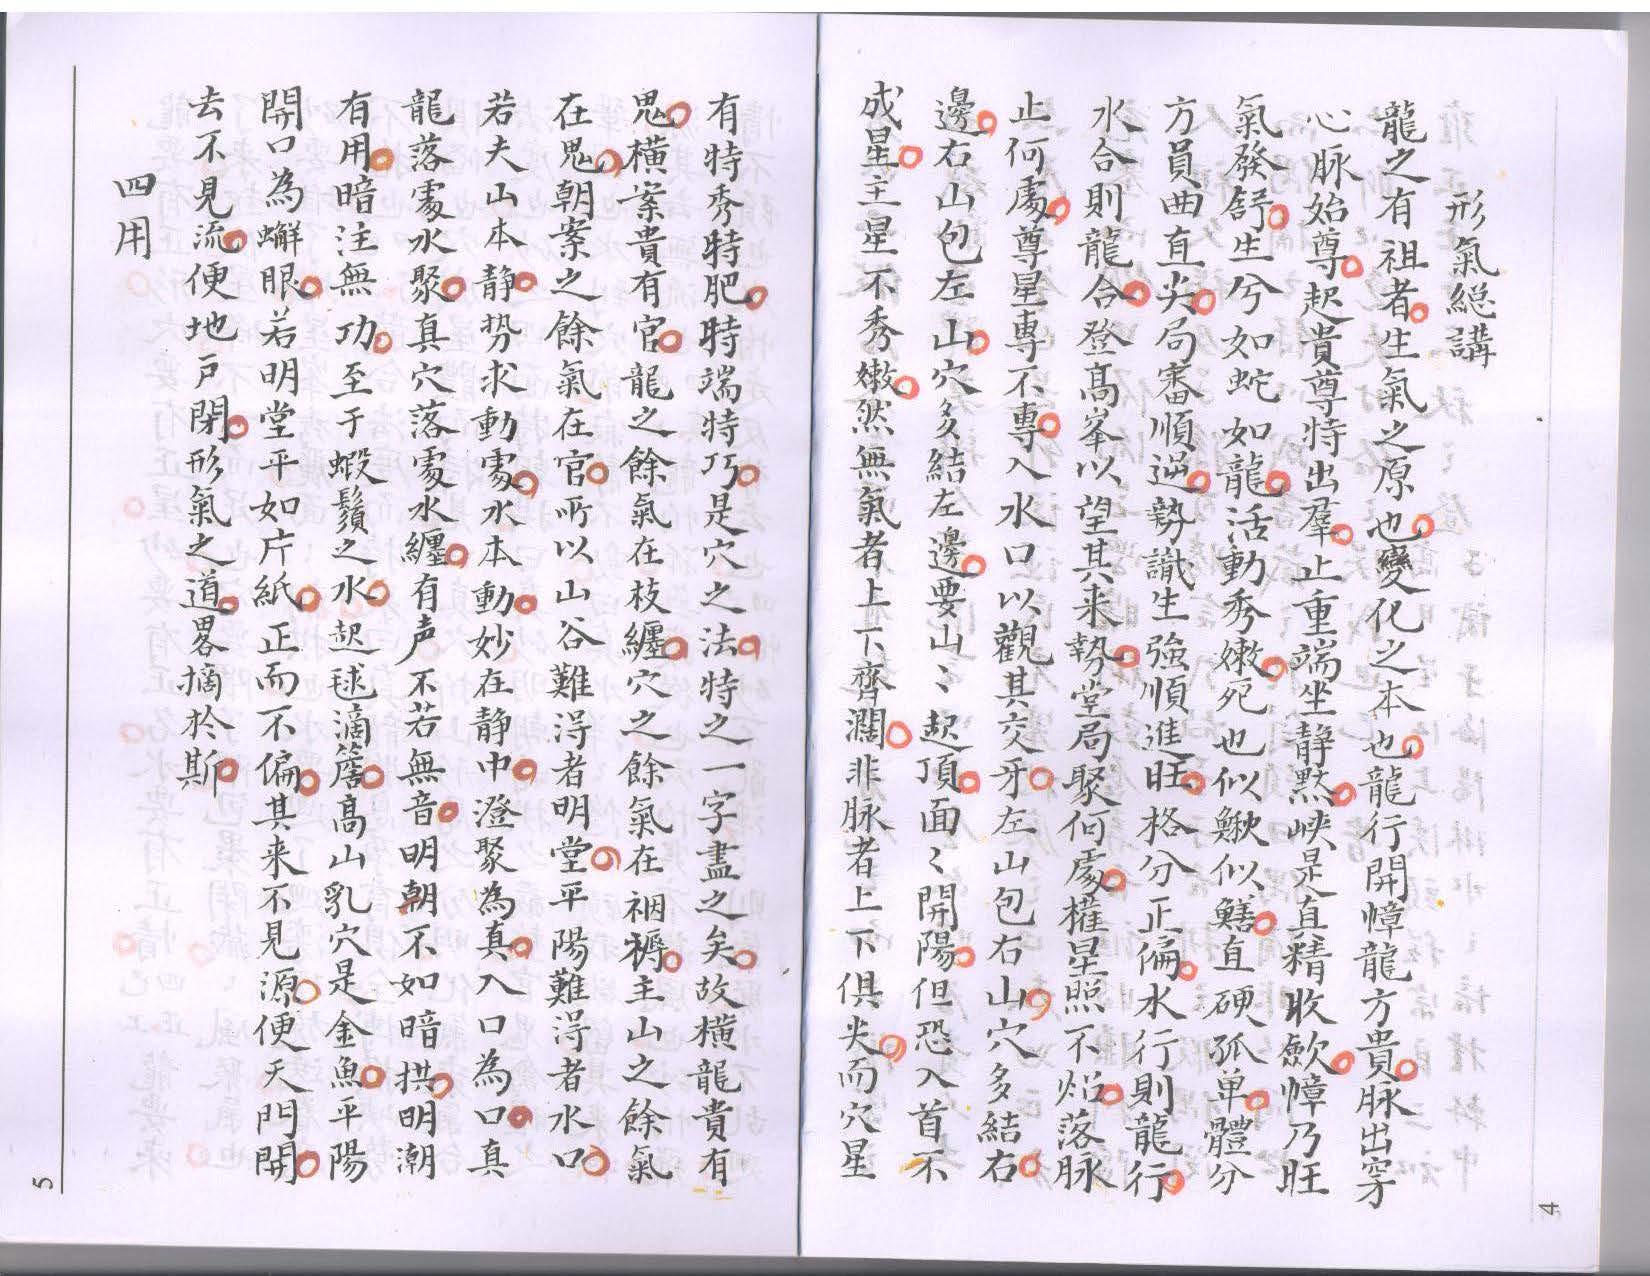 形氣総講
龍之有祖者生氣之原也變化之本也龍行開幛龍方貴脉出穿
心脉始尊起貴尊特出羣止重端坐静黙峡是真精收歛幛乃旺
氣發舒生兮如蛇如龍活動秀嫩死也似鰍似鱔直硬孤单體分
方員曲直尖局審順逆勢識生強順進旺格分正偏水行則龍行
水合則龍合登髙峯以望其来勢堂局聚何處權星照不熖落脉
止何處尊星專不專入水口以觀其交牙左山包右山穴多結右
邊右山包左山穴多結左邊要山〻起頂面〻開陽但恐入首不
成星主星不秀嫩然無氣者上下齊濶非脉者上下俱尖而穴星
有特秀特肥特端特巧是穴之法特之一字盡之矣故横龍貴有
鬼横案貴有官龍之餘氣在枝纏穴之餘氣在裀褥主山之餘氣
在鬼朝案之餘氣在官所以山谷難淂者明堂平陽難淂者水口
若夫山本静势求動處水本動妙在静中澄聚為真入口為口真
龍落處水聚真穴落處水纏有声不若無音明朝不如暗拱明潮
有用暗注無功至于蝦鬚之水起毬滴簷髙山乳穴是金魚平陽
開口為蠏眼若明堂平如片紙正而不偏其来不見源便天門開
去不見流便地户閉形氣之道畧摘於斯
四用
4
5